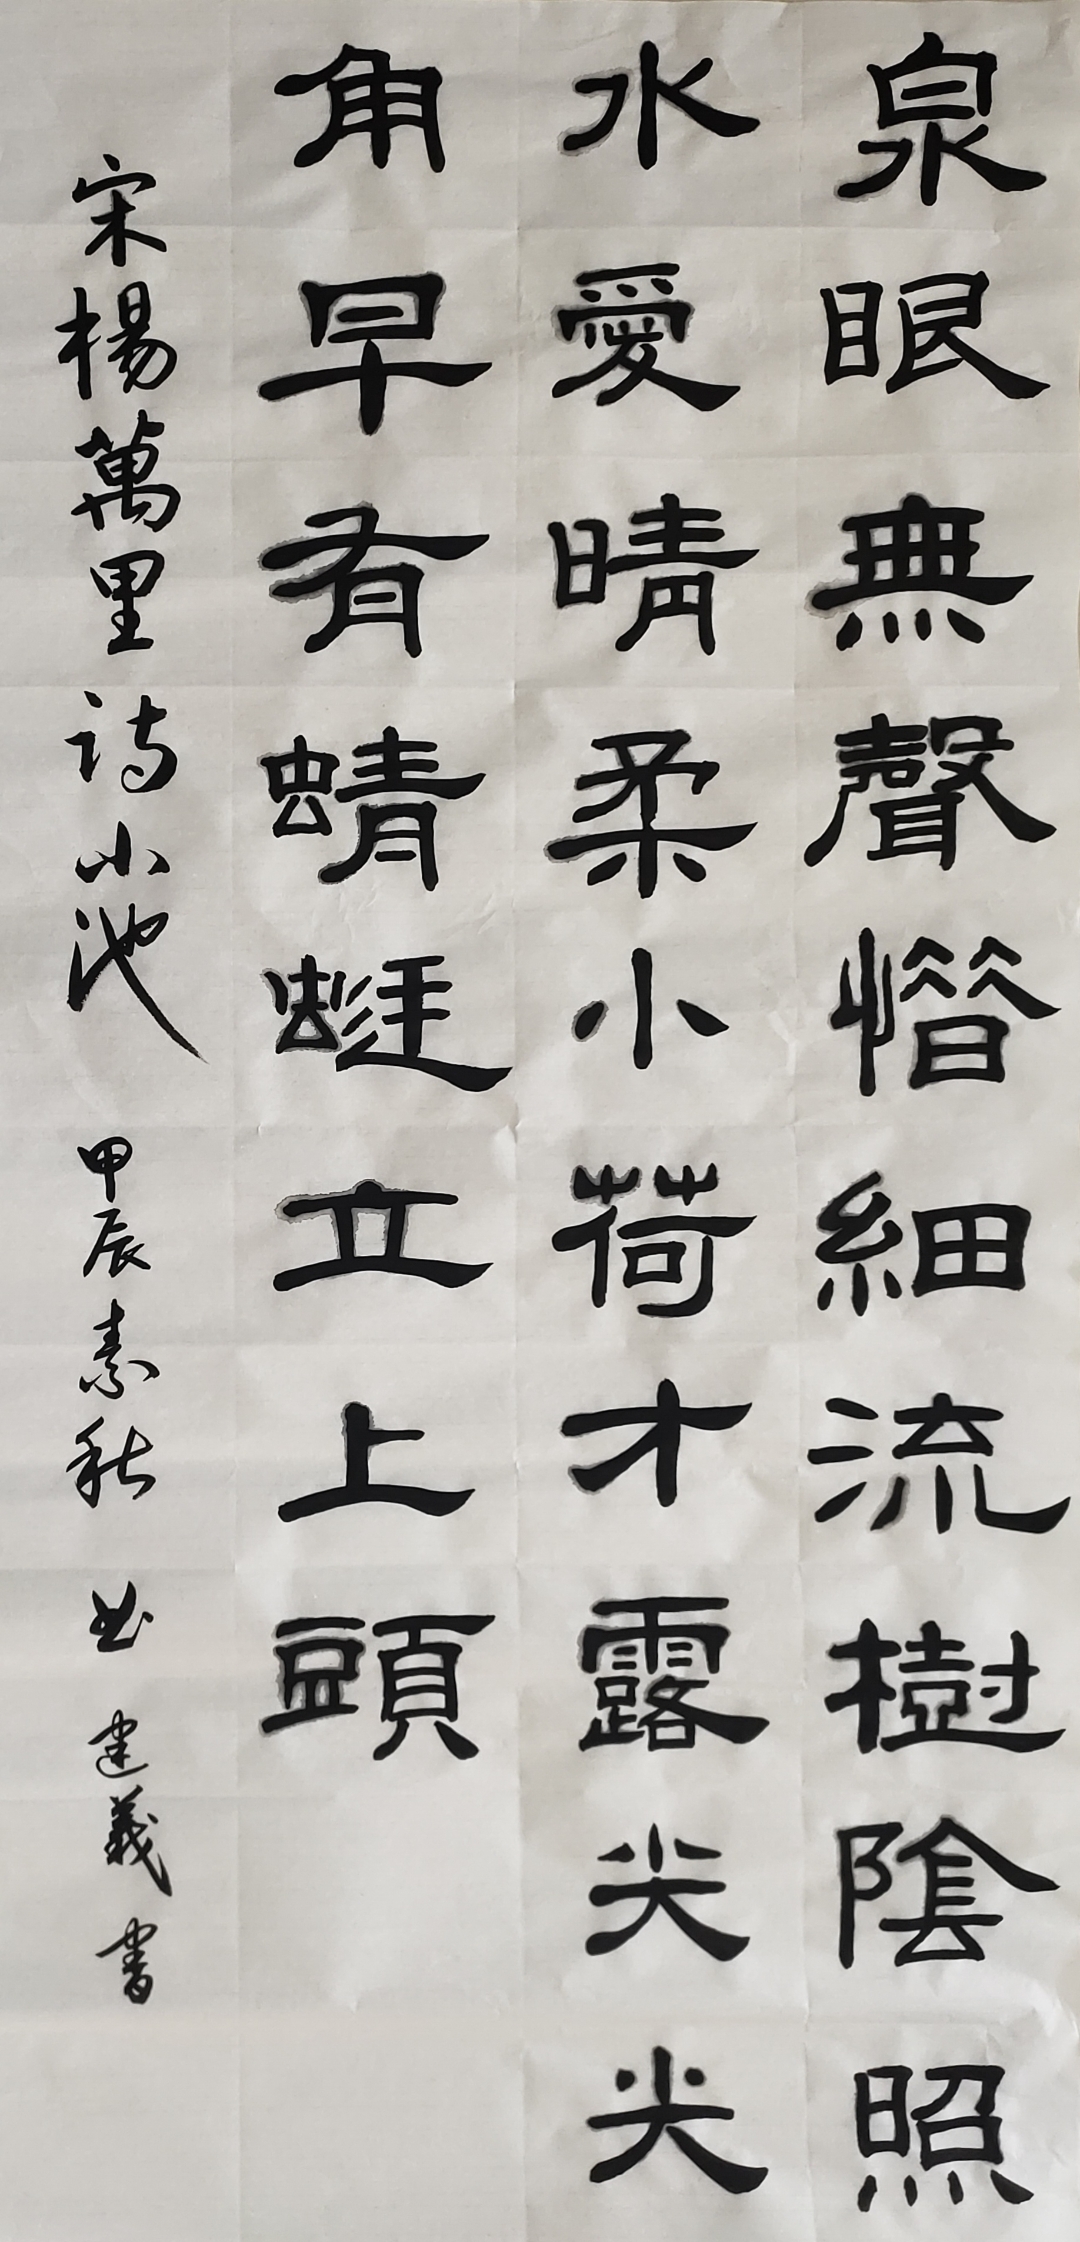 泉眼無聲惜細流樹陰照
水愛晴柔小荷才露尖尖
角早有蜻蜓立上頭
宋楊萬里詩小池 甲辰素秋 建義書